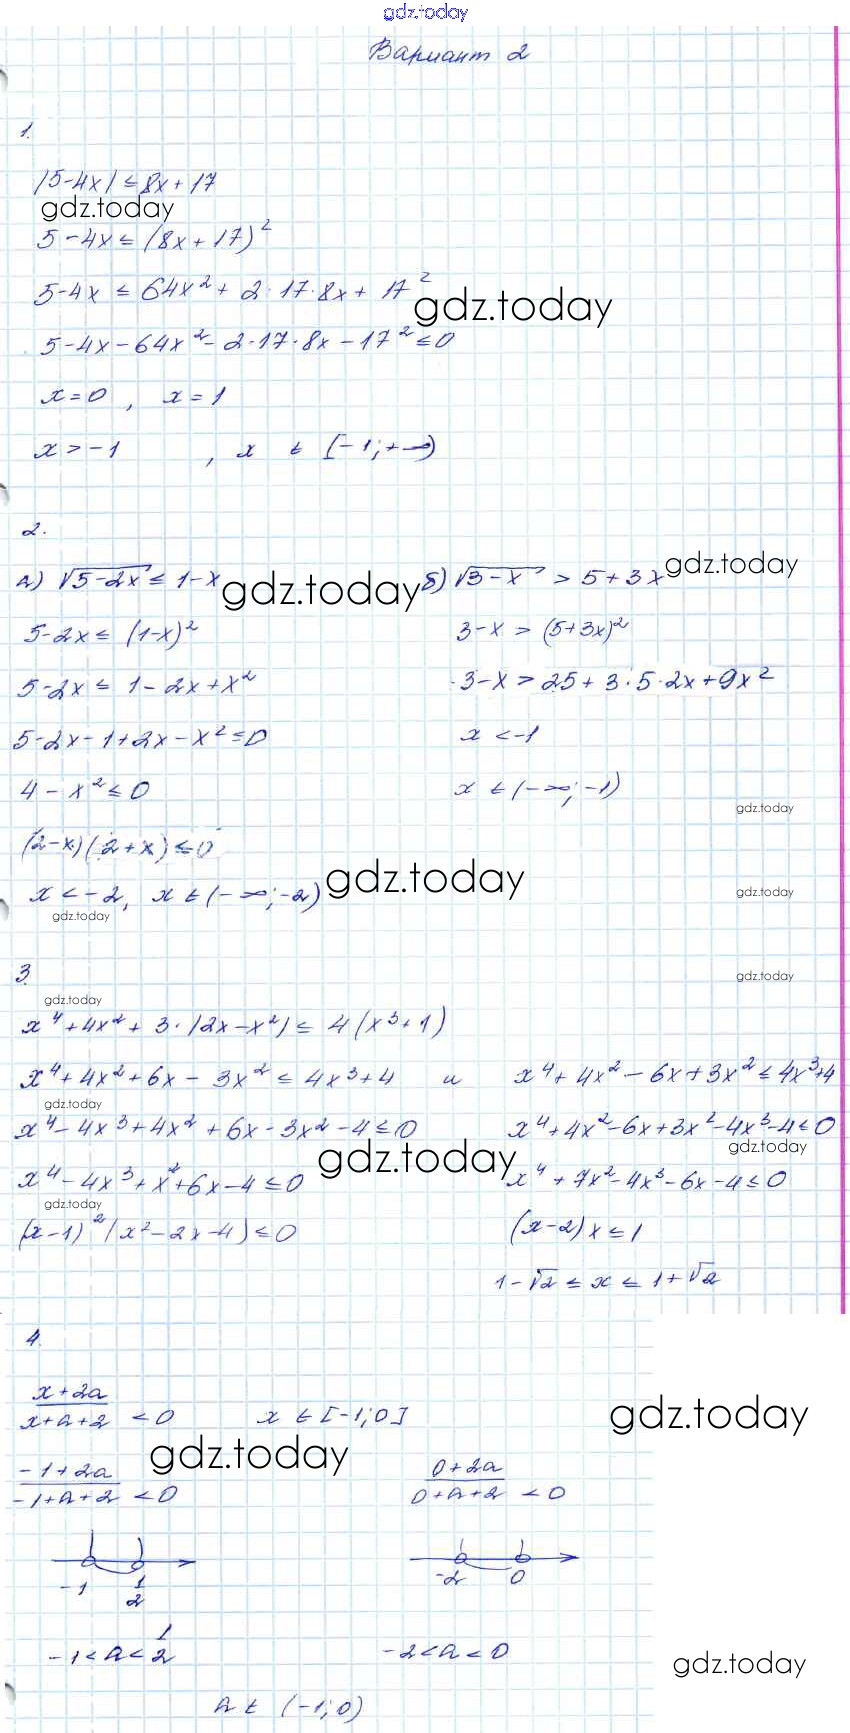 gdz.today
Вариант 2
1.
|5-4x| ≤ 8x+17
gdz.today
5-4x ≤ (8x+17)²
5-4x ≤ 64x² + 2·17·8x + 17²
gdz.today
5-4x-64x²-2·17·8x-17² ≤ 0
x=0, x=1
x>-1, x ∈ [-1;+∞)
2.
а) √5-2x ≤ 1-x gdz.today б) √3-x > 5+3x gdz.today
5-2x ≤ (1-x)² 3-x > (5+3x)²
5-2x ≤ 1-2x+x² 3-x > 25+3·5·2x+9x²
5-2x-1+2x-x² ≤ 0 x < -1
4-x² ≤ 0 x ∈ (-∞;-1)
gdz.today
(2-x)(2+x) ≤ 0
x < -2, x ∈ (-∞;-2) gdz.today gdz.today
gdz.today
3.
gdz.today
gdz.today
x⁴+4x²+3·|2x-x²| ≤ 4(x³+1)
x⁴+4x²+6x-3x² ≤ 4x³+4 и x⁴+4x²-6x+3x² ≤ 4x³+4
gdz.today
x⁴-4x³+4x²+6x-3x²-4 ≤ 0 x⁴+4x²-6x+3x²-4x³-4 ≤ 0
gdz.today gdz.today
x⁴-4x³+x²+6x-4 ≤ 0 x⁴+7x²-4x³-6x-4 ≤ 0
gdz.today
(x-1)²(x²-2x-4) ≤ 0 (x-2)x ≤ 1
1-√2 ≤ x ≤ 1+√2
4.
x+2a
x+a+2 < 0 x ∈ [-1;0] gdz.today
gdz.today
-1+2a 0+2a
-1+a+2 < 0 0+a+2 < 0
-1 1/2 -2 0
-1 < a < 1/2 -2 < a < 0
gdz.today
a ∈ (-1;0)